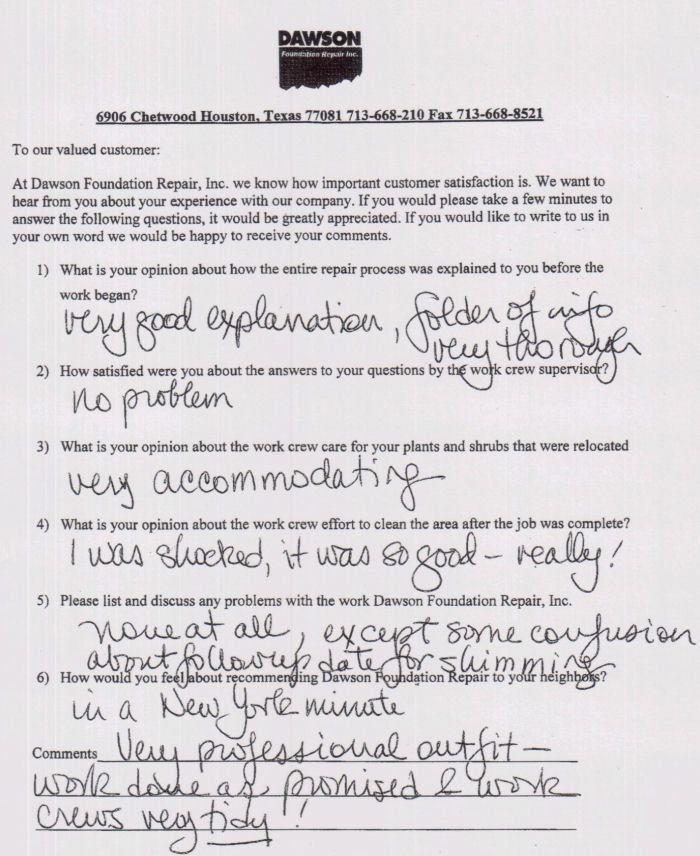 DAWSON
Foundation Repair Inc.
6906 Chetwood Houston, Texas 77081 713-668-210 Fax 713-668-8521
To our valued customer:
At Dawson Foundation Repair, Inc. we know how important customer satisfaction is. We want to
hear from you about your experience with our company. If you would please take a few minutes to
answer the following questions, it would be greatly appreciated. If you would like to write to us in
your own word we would be happy to receive your comments.
1) What is your opinion about how the entire repair process was explained to you before the
work began?
very good explanation, folder of info
very thorough
2) How satisfied were you about the answers to your questions by the work crew supervisor?
no problem
3) What is your opinion about the work crew care for your plants and shrubs that were relocated
very accommodating
4) What is your opinion about the work crew effort to clean the area after the job was complete?
I was shocked, it was so good – really!
5) Please list and discuss any problems with the work Dawson Foundation Repair, Inc.
none at all, except some confusion
about followup date for shimming
6) How would you feel about recommending Dawson Foundation Repair to your neighbors?
in a New York minute
Comments Very professional outfit –
work done as promised & work
crews very tidy!!